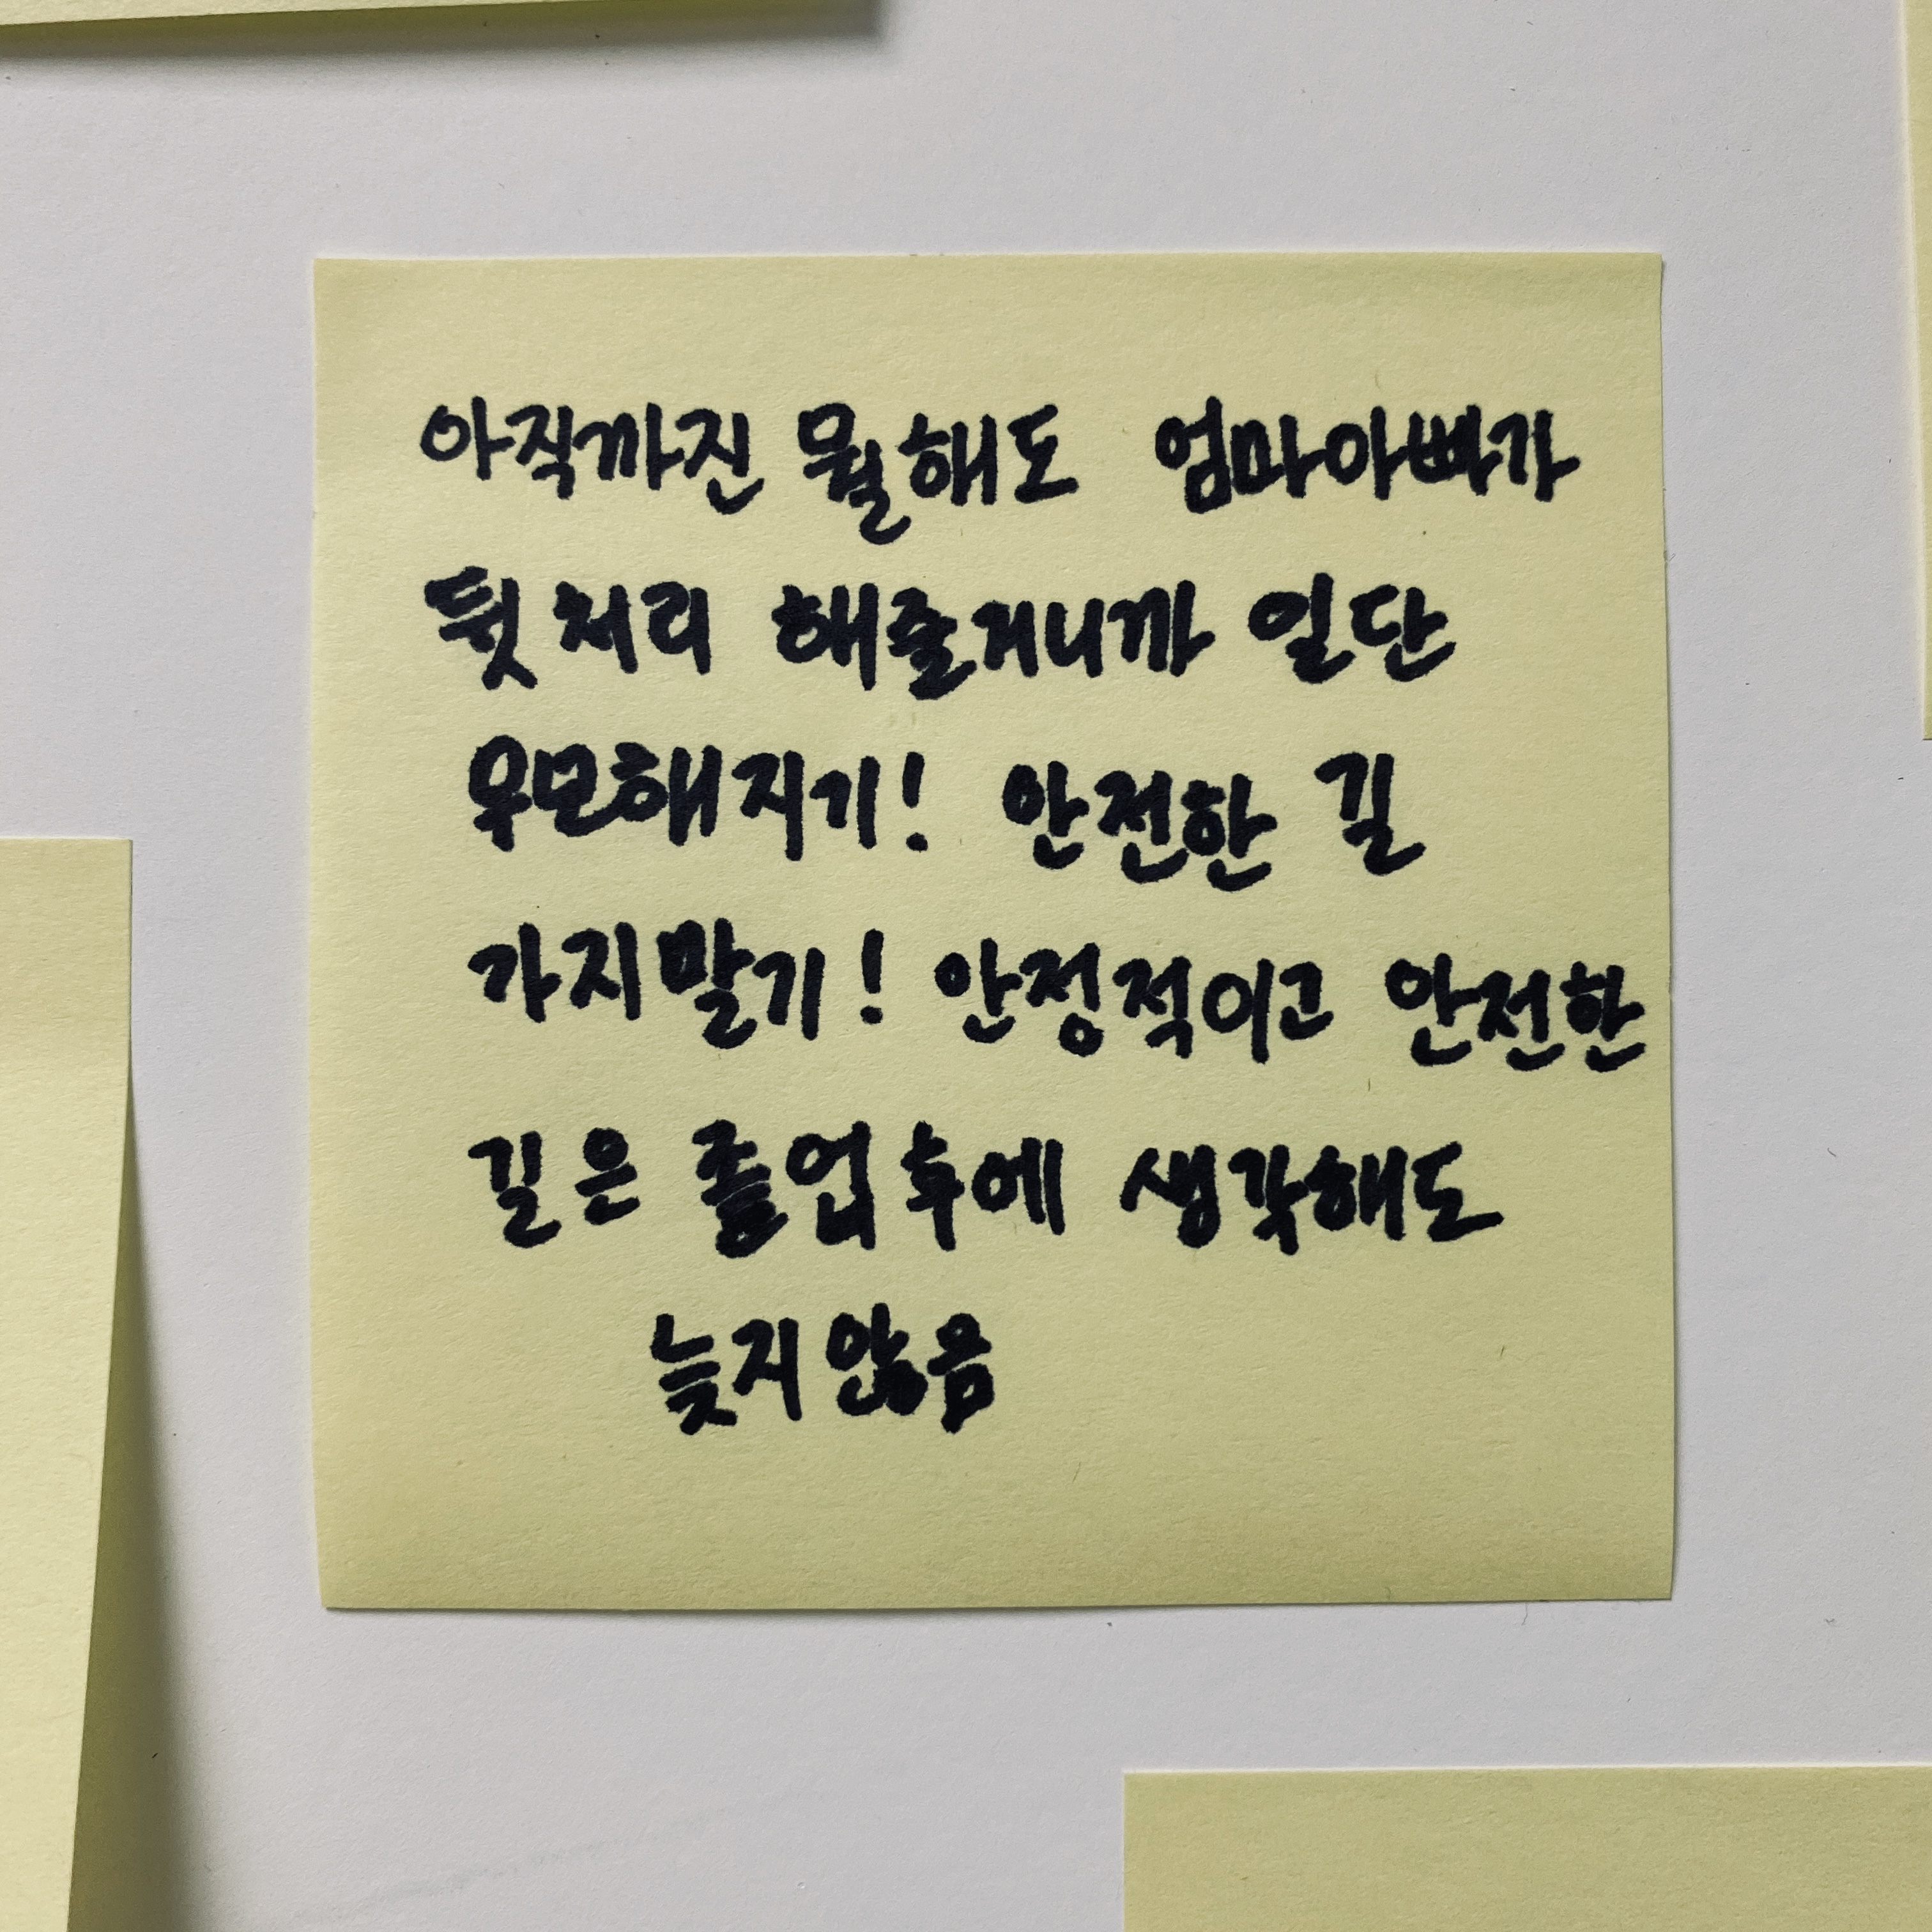 아직까진 뭘해도 엄마아빠가
뒷처리 해줄거니까 일단
무모해지기! 안전한 길
가지말기! 안정적이고 안전한
길은 졸업후에 생각해도
늦지않음